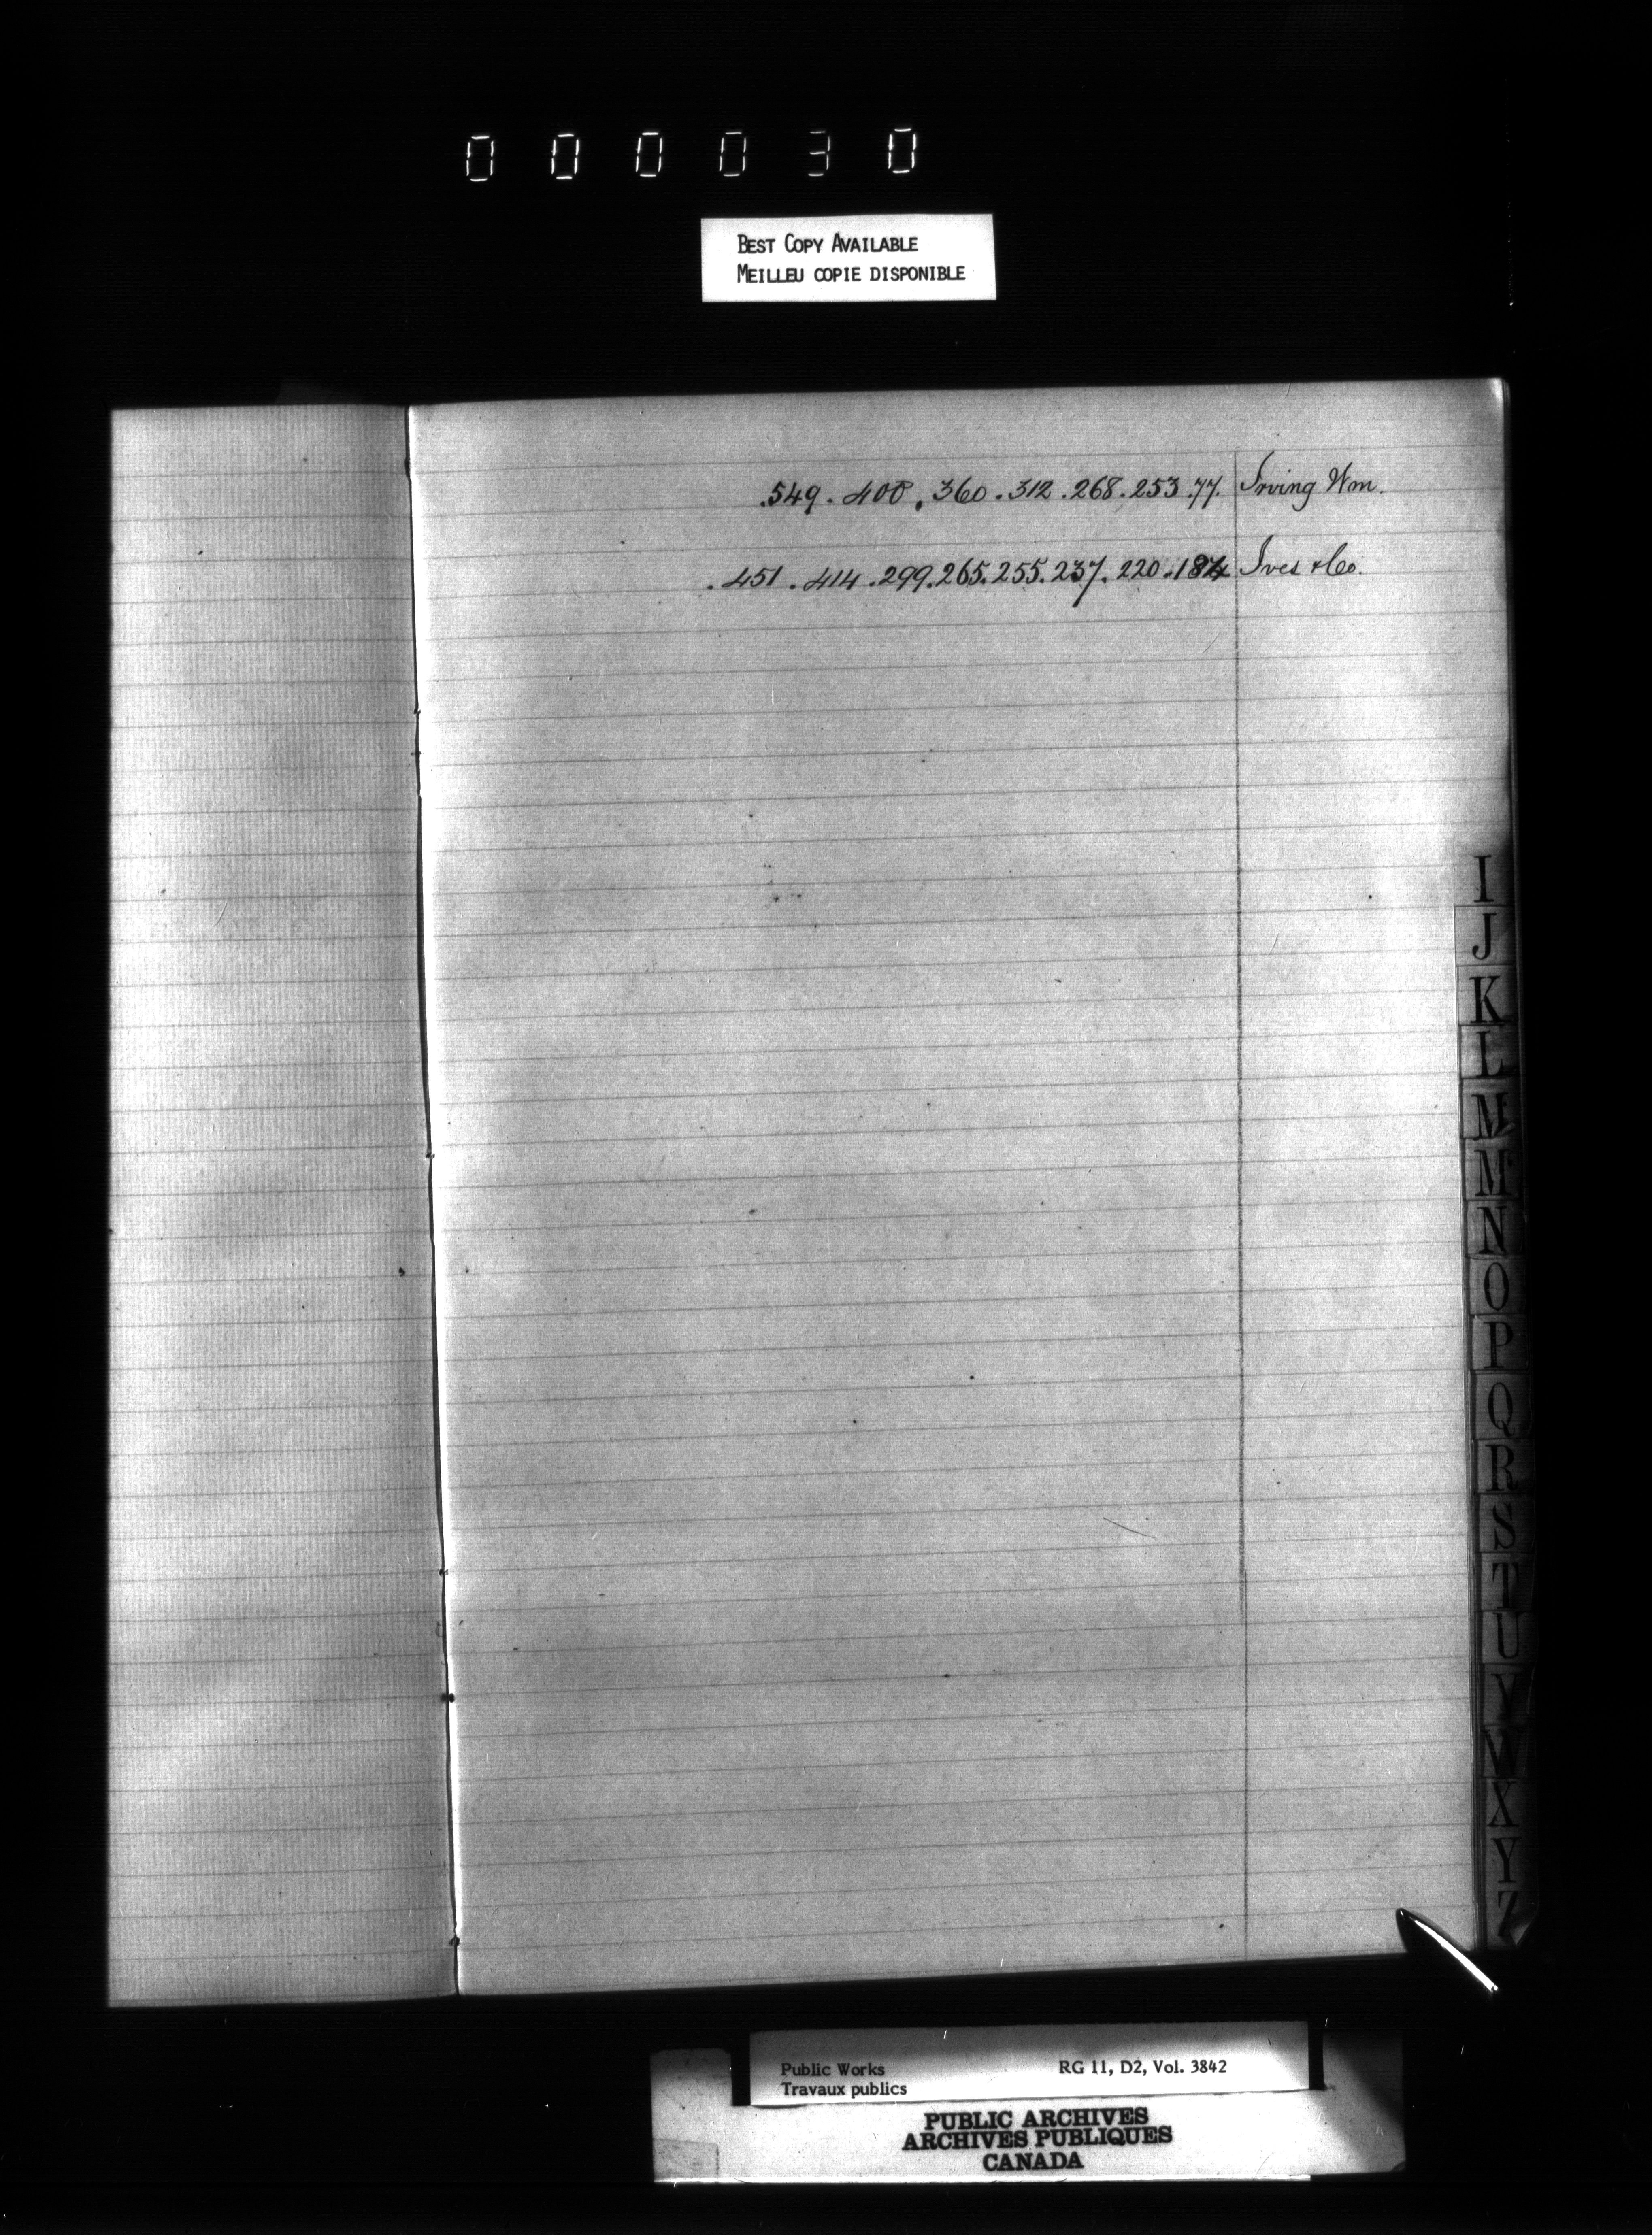 000030
BEST COPY AVAILABLE
MEILLEU COPIE DISPONIBLE
.549. 408, 360. 312. 268. 253. 77. Irving Wm.
. 451 . 414 . 299. 265. 255. 237. 220. 184 Ives & Co.
I
J
K
L
Mc
M
N
O
P
Q
R
S
T
U
V
W
X
Y
Z
Public Works RG 11, D2, Vol. 3842
Travaux publics
PUBLIC ARCHIVES
ARCHIVES PUBLIQUES
CANADA